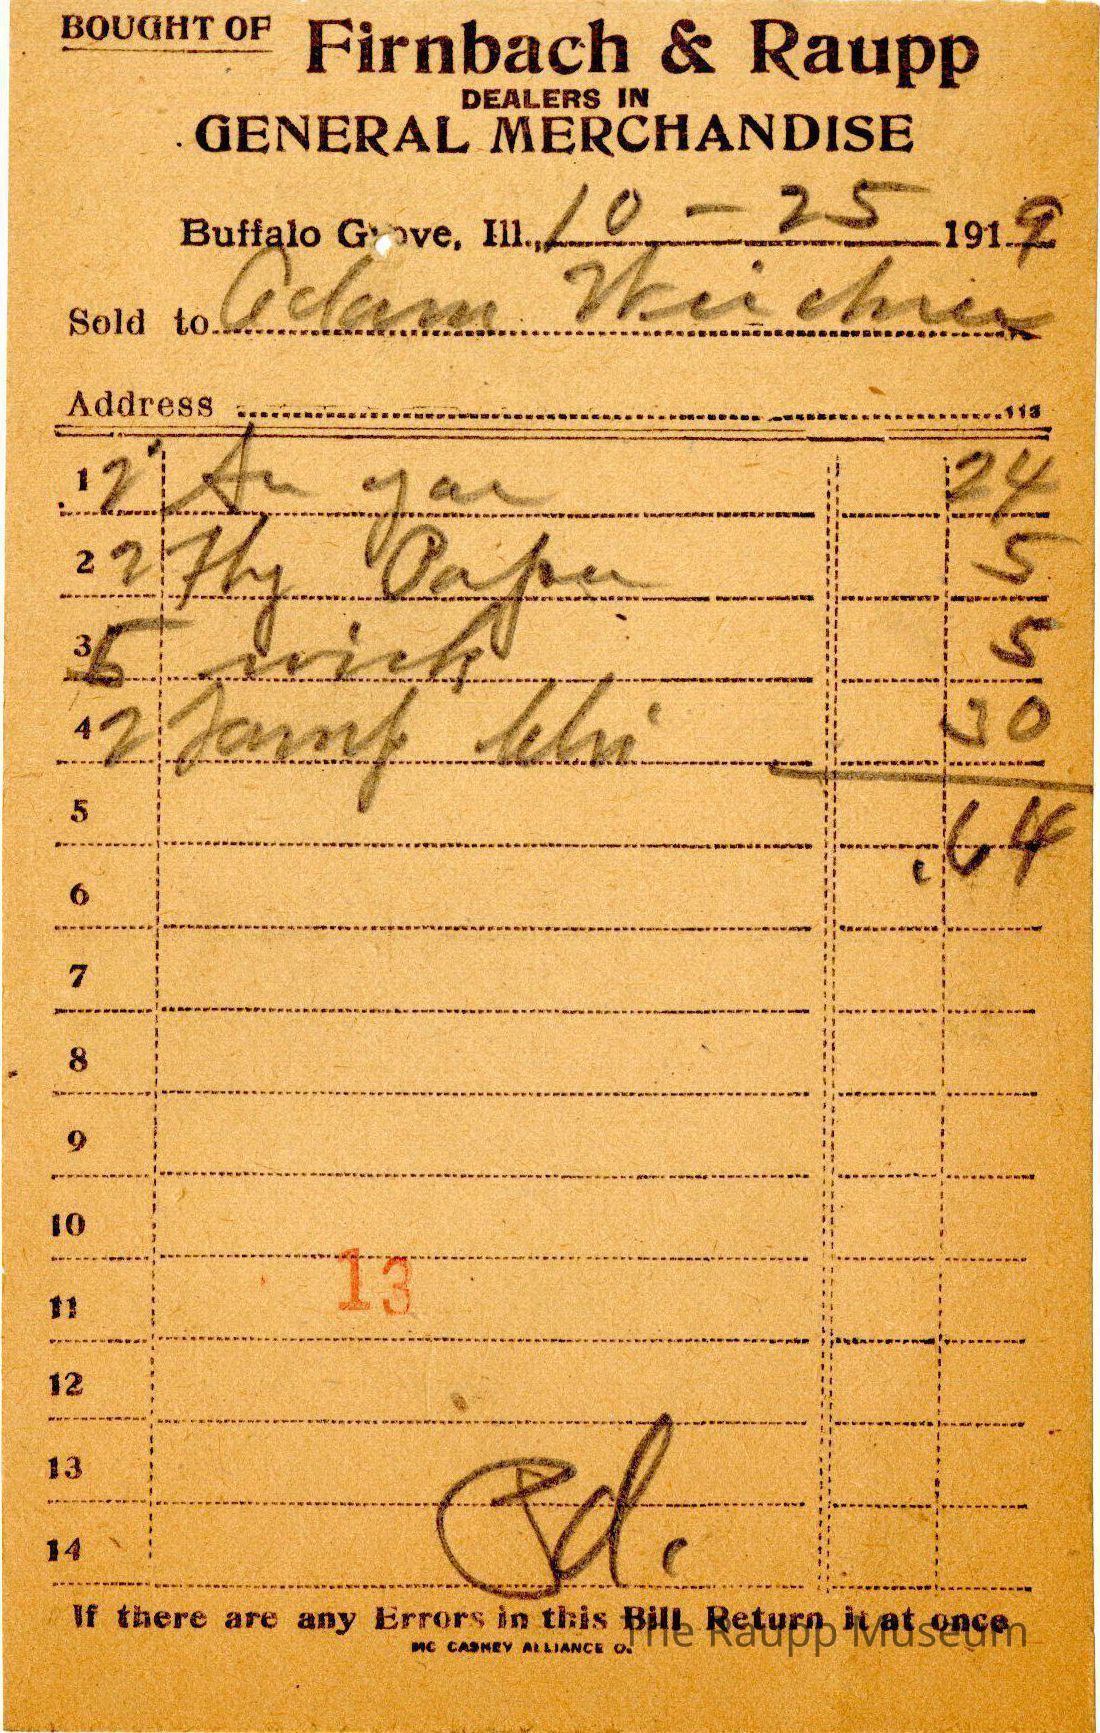 BOUGHT OF Firnbach & Raupp
DEALERS IN
GENERAL MERCHANDISE
Buffalo Grove, Ill., 10 - 25 1919
Sold to Adam
Address 113
1 2 24
2 2 Fly Paper 5
3 5 wick 5
4 2 Lamp Chi 30
5 .64
6
7
8
9
10
13
11
12
13
Pd.
14
If there are any Errors in this Bill Return it at once
The Raupp Museum
MC CASKEY ALLIANCE O.